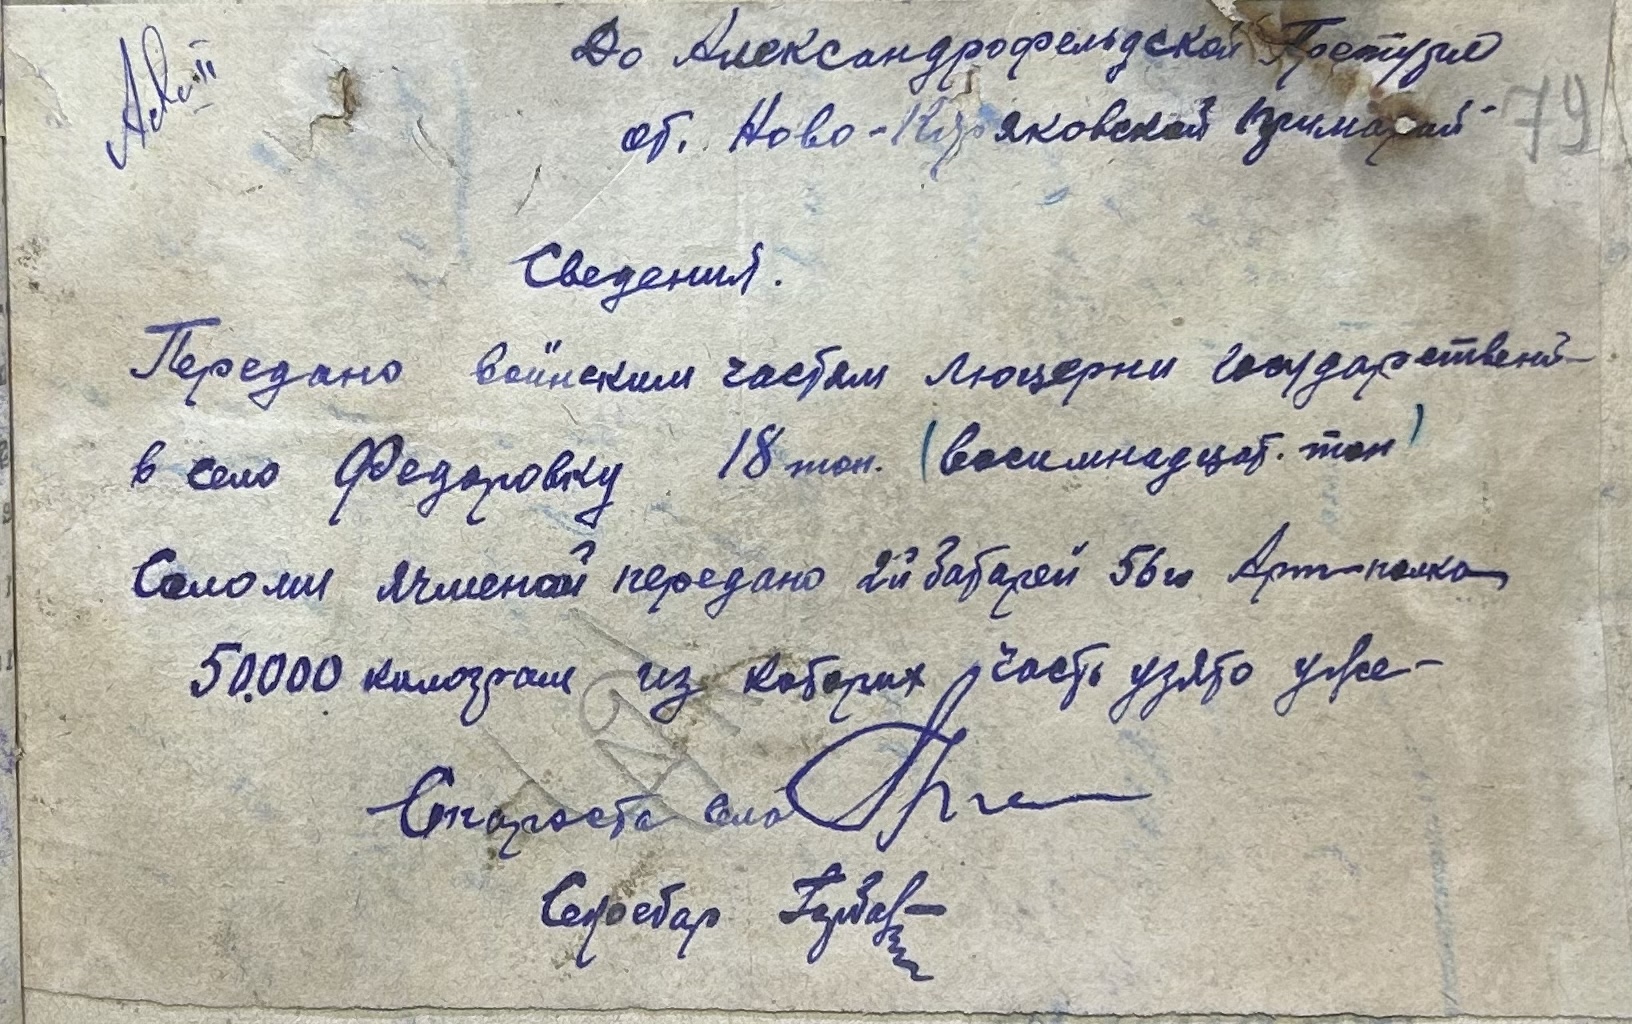 До Александрофельдской Претуры
79
от. Ново-Кудряковской Примарии
Сведения.
Передано воинским частям люцерни государствений
в село Федоровку 18 тон. (восимнадцат. тон)
Соломи ячменой передано 2й батареи 56го Арт-полка
50.000 килограм из которих часть узято уже-
Староста села
Секретар